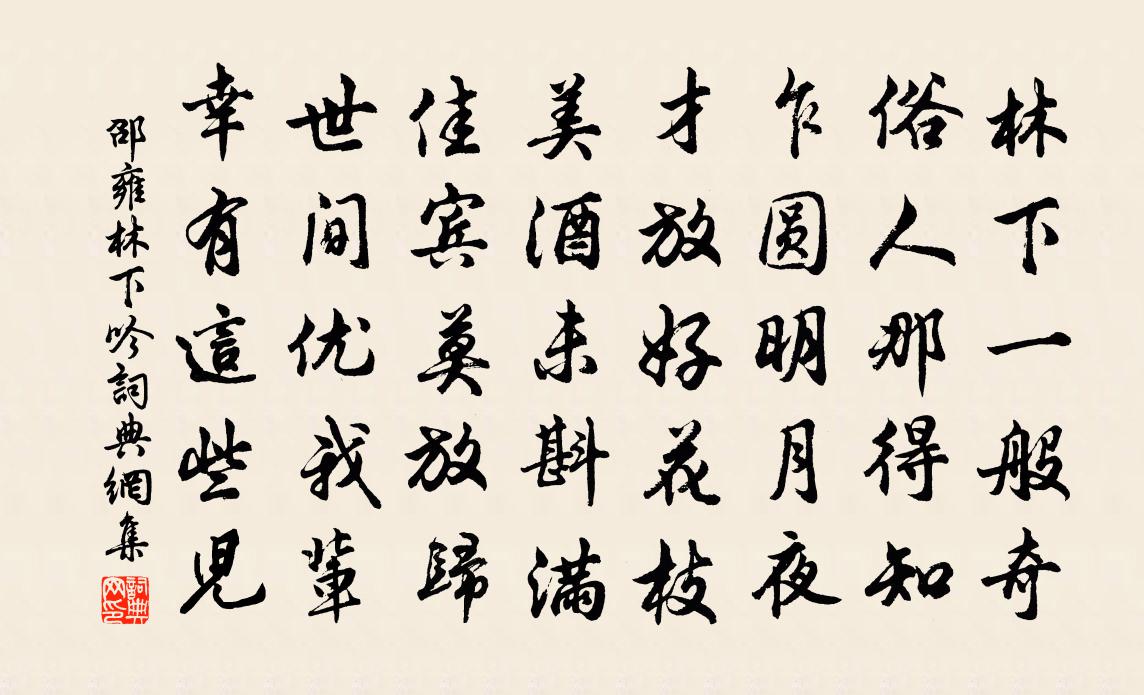 林下一般奇
俗人那得知
乍圆明月夜
才放好花枝
美酒未斟满
佳宾莫放歸
世间优我輩
幸有這些児
邵雍林下吟詞典網集
詞典网印